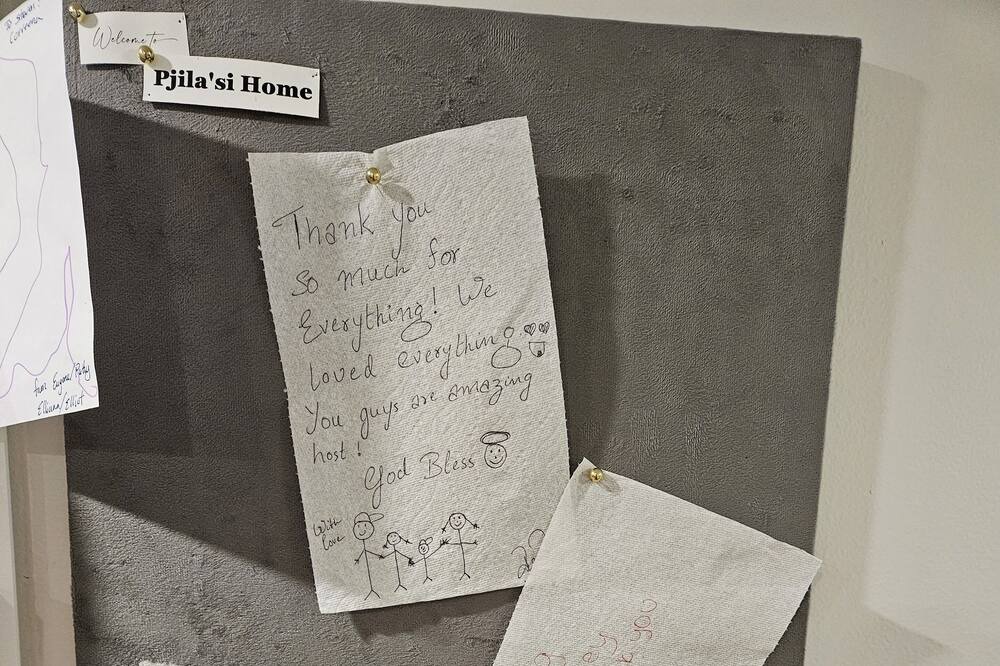 Welcome to
Pjila'si Home
Thank you
So much for
Everything! We
loved everything.
You guys are amazing
host!
God Bless
With
love
from Eugene/
Elliot